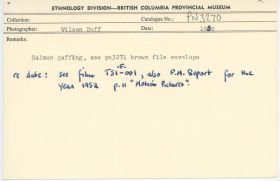 ETHNOLOGY DIVISION—BRITISH COLUMBIA PROVINCIAL MUSEUM
Collection Catalogue No.: PN3270
Photographer: Wilson Duff 1952
Remarks:
Salmon gaffing, see pn3271 brown file envelope
re date: see film TSI-F-001, also P.M. Report for the
year 1952 p.11 "Motion Pictures".